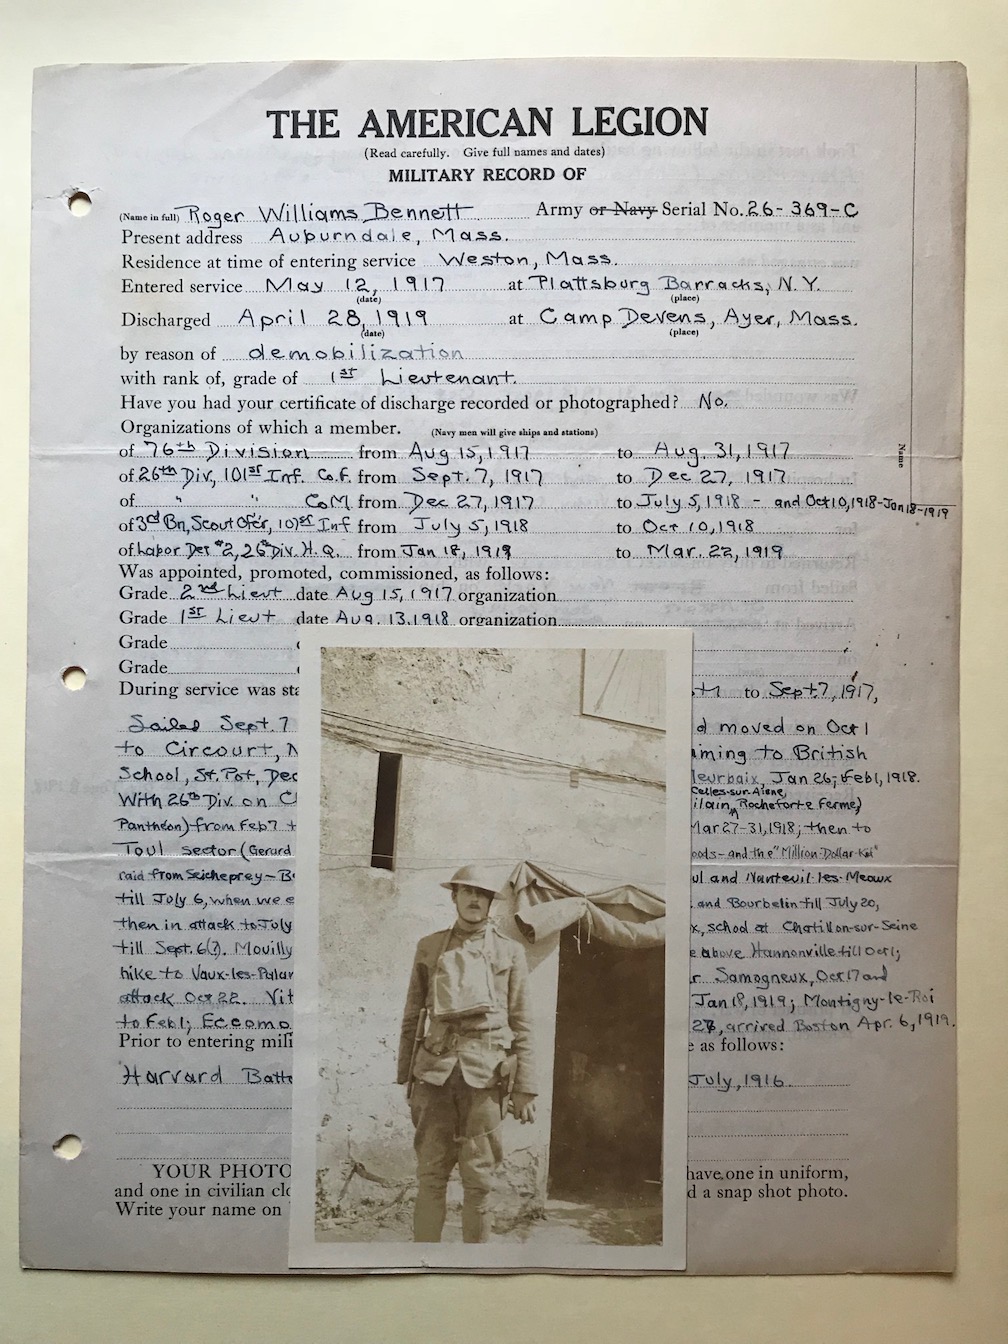 THE AMERICAN LEGION
(Read carefully. Give full names and dates)
MILITARY RECORD OF
(Name in full) Roger Williams Bennett Army or Navy Serial No. 26-369-C
Present address Auburndale, Mass.
Residence at time of entering service Weston, Mass.
Entered service May 12, 1917 at Plattsburg Barracks, N.Y.
(date) (place)
Discharged April 28, 1919 at Camp Devens, Ayer, Mass.
(date) (place)
by reason of demobilization
with rank of, grade of 1st Lieutenant.
Have you had your certificate of discharge recorded or photographed? No.
Organizations of which a member. (Navy men will give ships and stations)
of 76th Division from Aug 15, 1917 to Aug. 31, 1917
Name
of 26th Div, 101st Inf. Co.F. from Sept. 7, 1917 to Dec 27, 1917
of " " Co M. from Dec 27, 1917 to July 5, 1918 - and Oct 10, 1918-Jan 18-1919
of 3rd Bn, Scout Ofc'r, 101st Inf from July 5, 1918 to Oct 10, 1918
of Labor Det #2, 26th Div. H.Q. from Jan 18, 1919 to Mar. 22, 1919
Was appointed, promoted, commissioned, as follows:
Grade 2nd Lieut date Aug 15, 1917 organization
Grade 1st Lieut date Aug. 13, 1918 organization
Grade
Grade
During service was sta to Sept 7, 1917,
Sailed Sept. 7 d moved on Oct 1
to Circourt, N ming to British
School, St. Pot, Dec leurbaix, Jan 26; Feb 1, 1918.
Celles-sur-Aisne,
With 26th Div. on C ilain, Rocheforte Ferme)
Pantheon) from Feb 7 t Mar 27-31, 1918; then to
Toul sector (Gerard oods - and the "Million-Dollar-Kid"
raid from Seicheprey - B ul and Nanteuil-les-Meaux
till July 6, when we e and Bourbelin till July 20,
then in attack to July x, school at Chatillon-sur-Seine
till Sept. 6(?). Mouilly e above Hannonville till Oct 1;
hike to Vaux-les-Palam r Samogneux, Oct 17 and
attack Oct 22. Vit Jan 18, 1919; Montigny-le-Roi
to Feb 1; Eccomo 27, arrived Boston Apr. 6, 1919.
Prior to entering mili e as follows:
Harvard Batt July, 1916.
YOUR PHOTO have one in uniform,
and one in civilian clo d a snap shot photo.
Write your name on